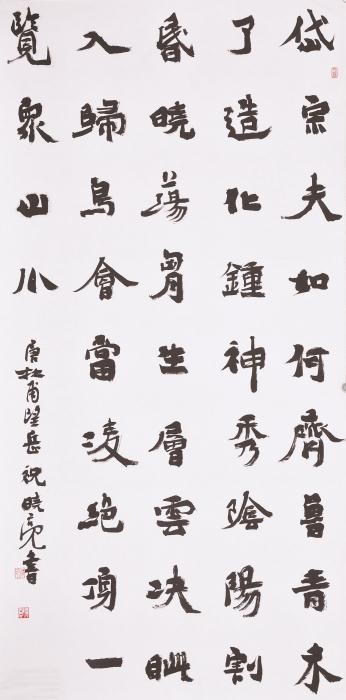 岱宗夫如何齊魯青未
了造化鍾神秀陰陽割
昏曉蕩胷生層雲決眦
入歸鳥會當淩絕頂一
覽眾山小
唐杜甫望岳 祝曉亮書